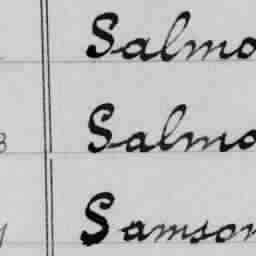 Salmo
Salmo
Samson